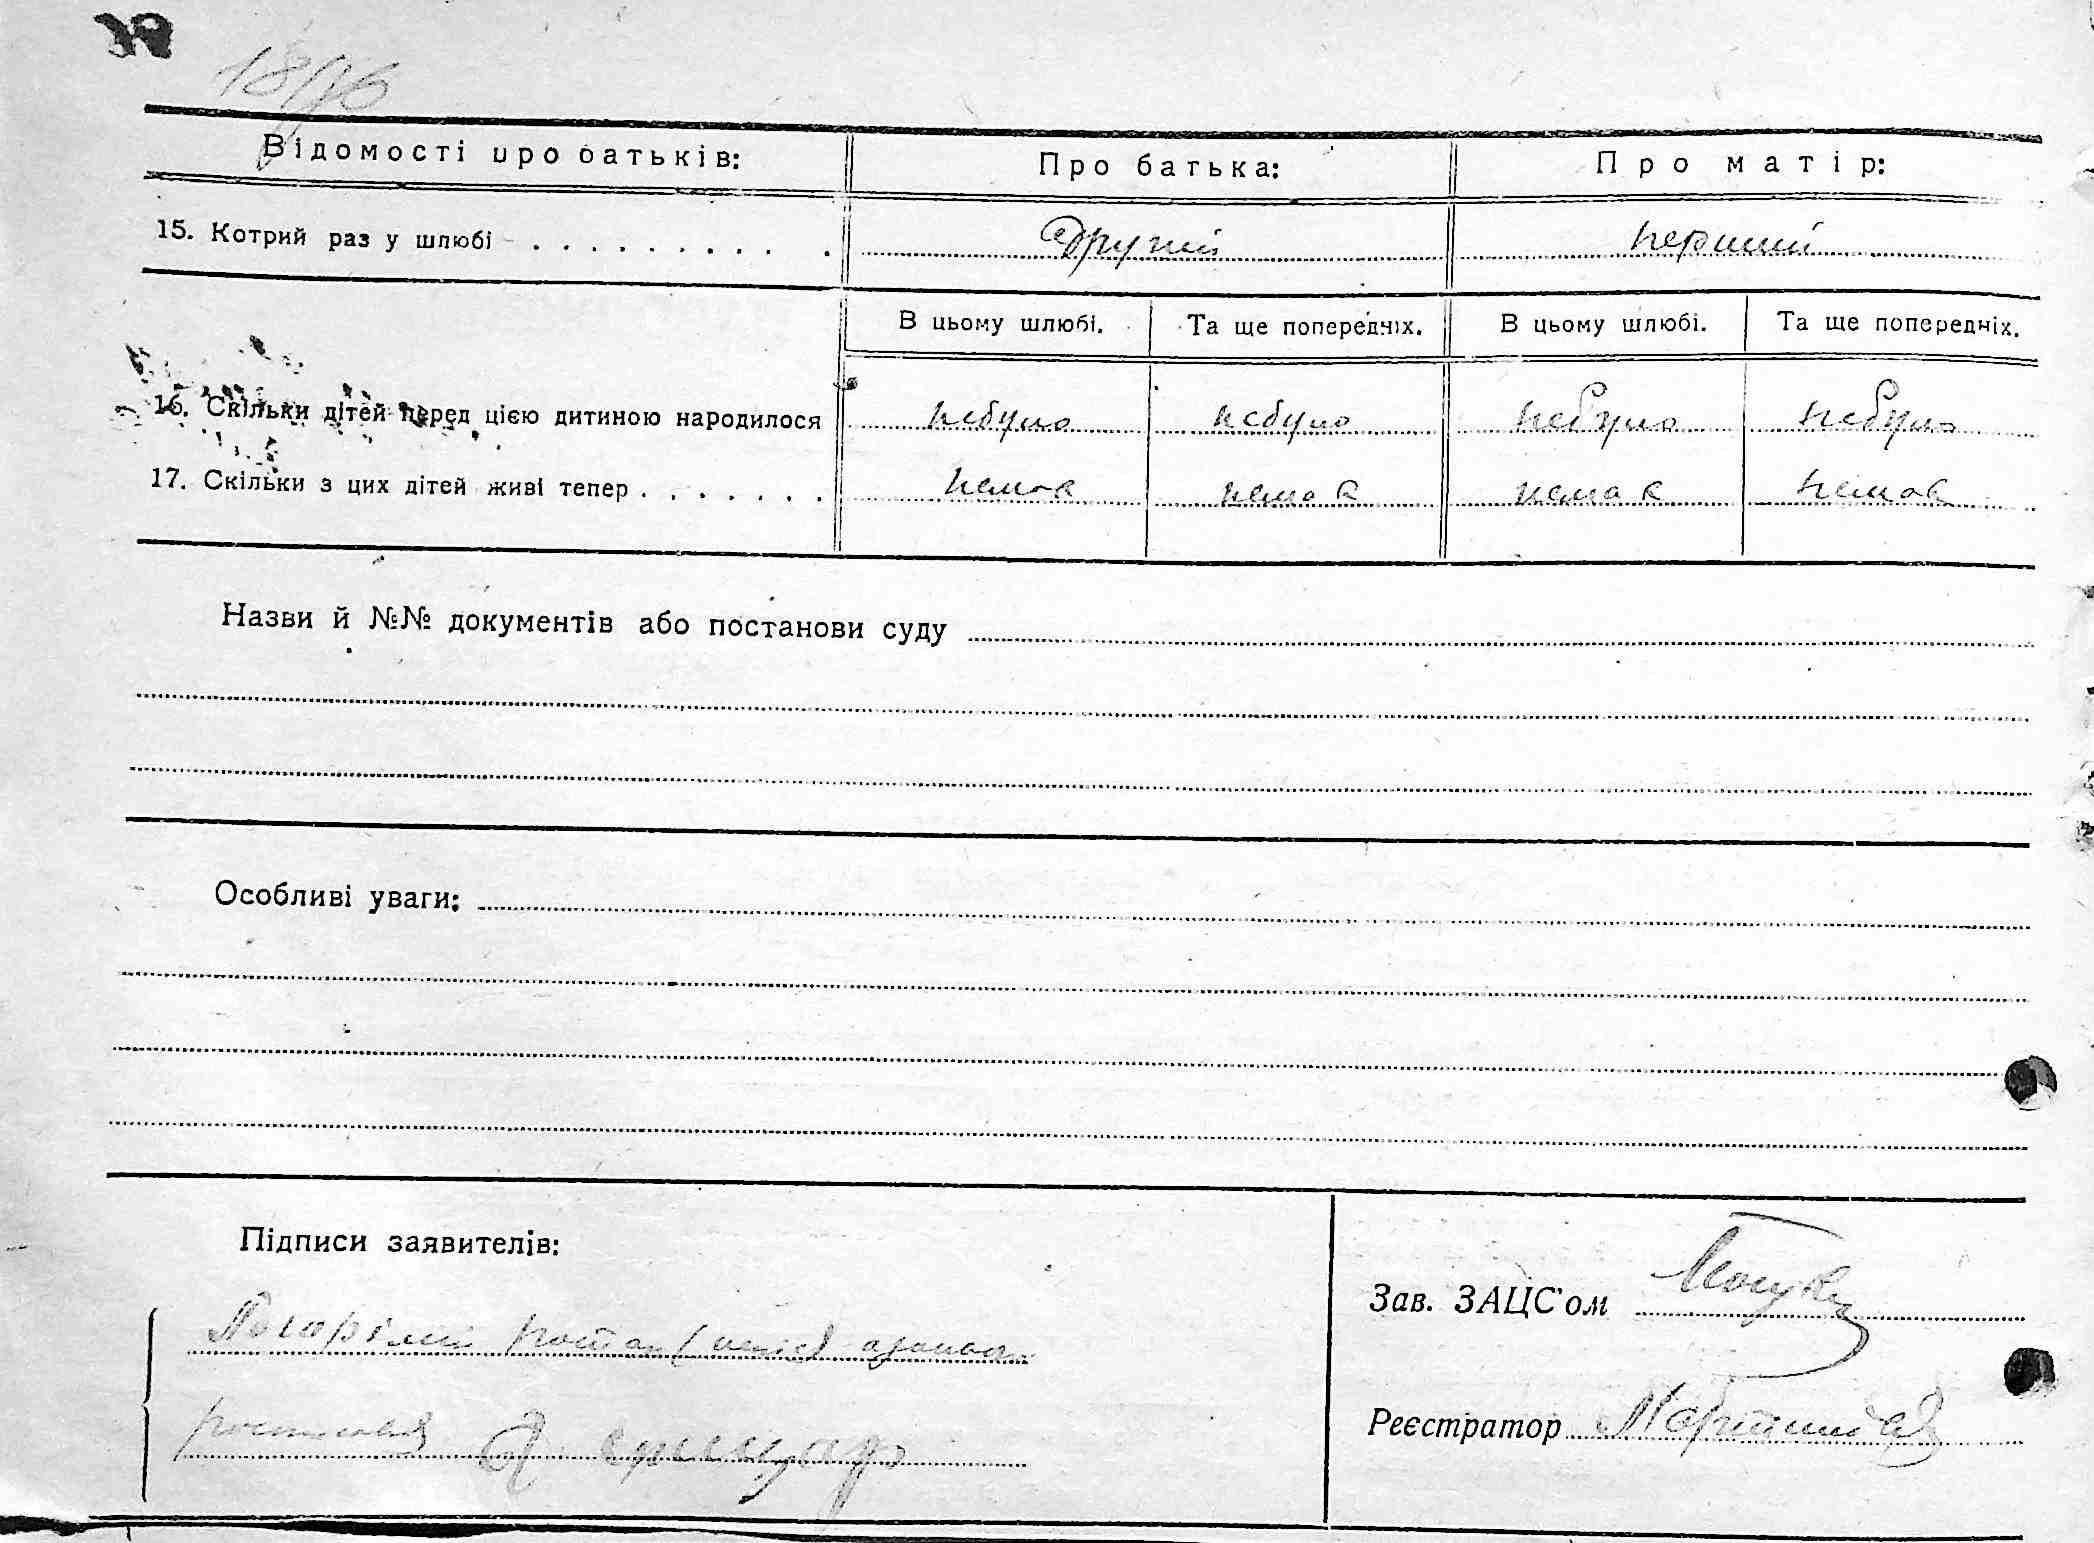 Відомості про батьків: Про батька: Про матір:
15. Котрий раз у шлюбі . . . . . . . . . . . другий перший
В цьому шлюбі. Та ще попередніх. В цьому шлюбі. Та ще попередніх.
16. Скільки дітей перед цією дитиною народилося небуло небуло небуло небуло
17. Скільки з цих дітей живі тепер . . . . . . . немає немає немає немає
Назви й №№ документів або постанови суду
Особливі уваги:
Підписи заявителів:
Зав. ЗАЦС'ом
Реєстратор